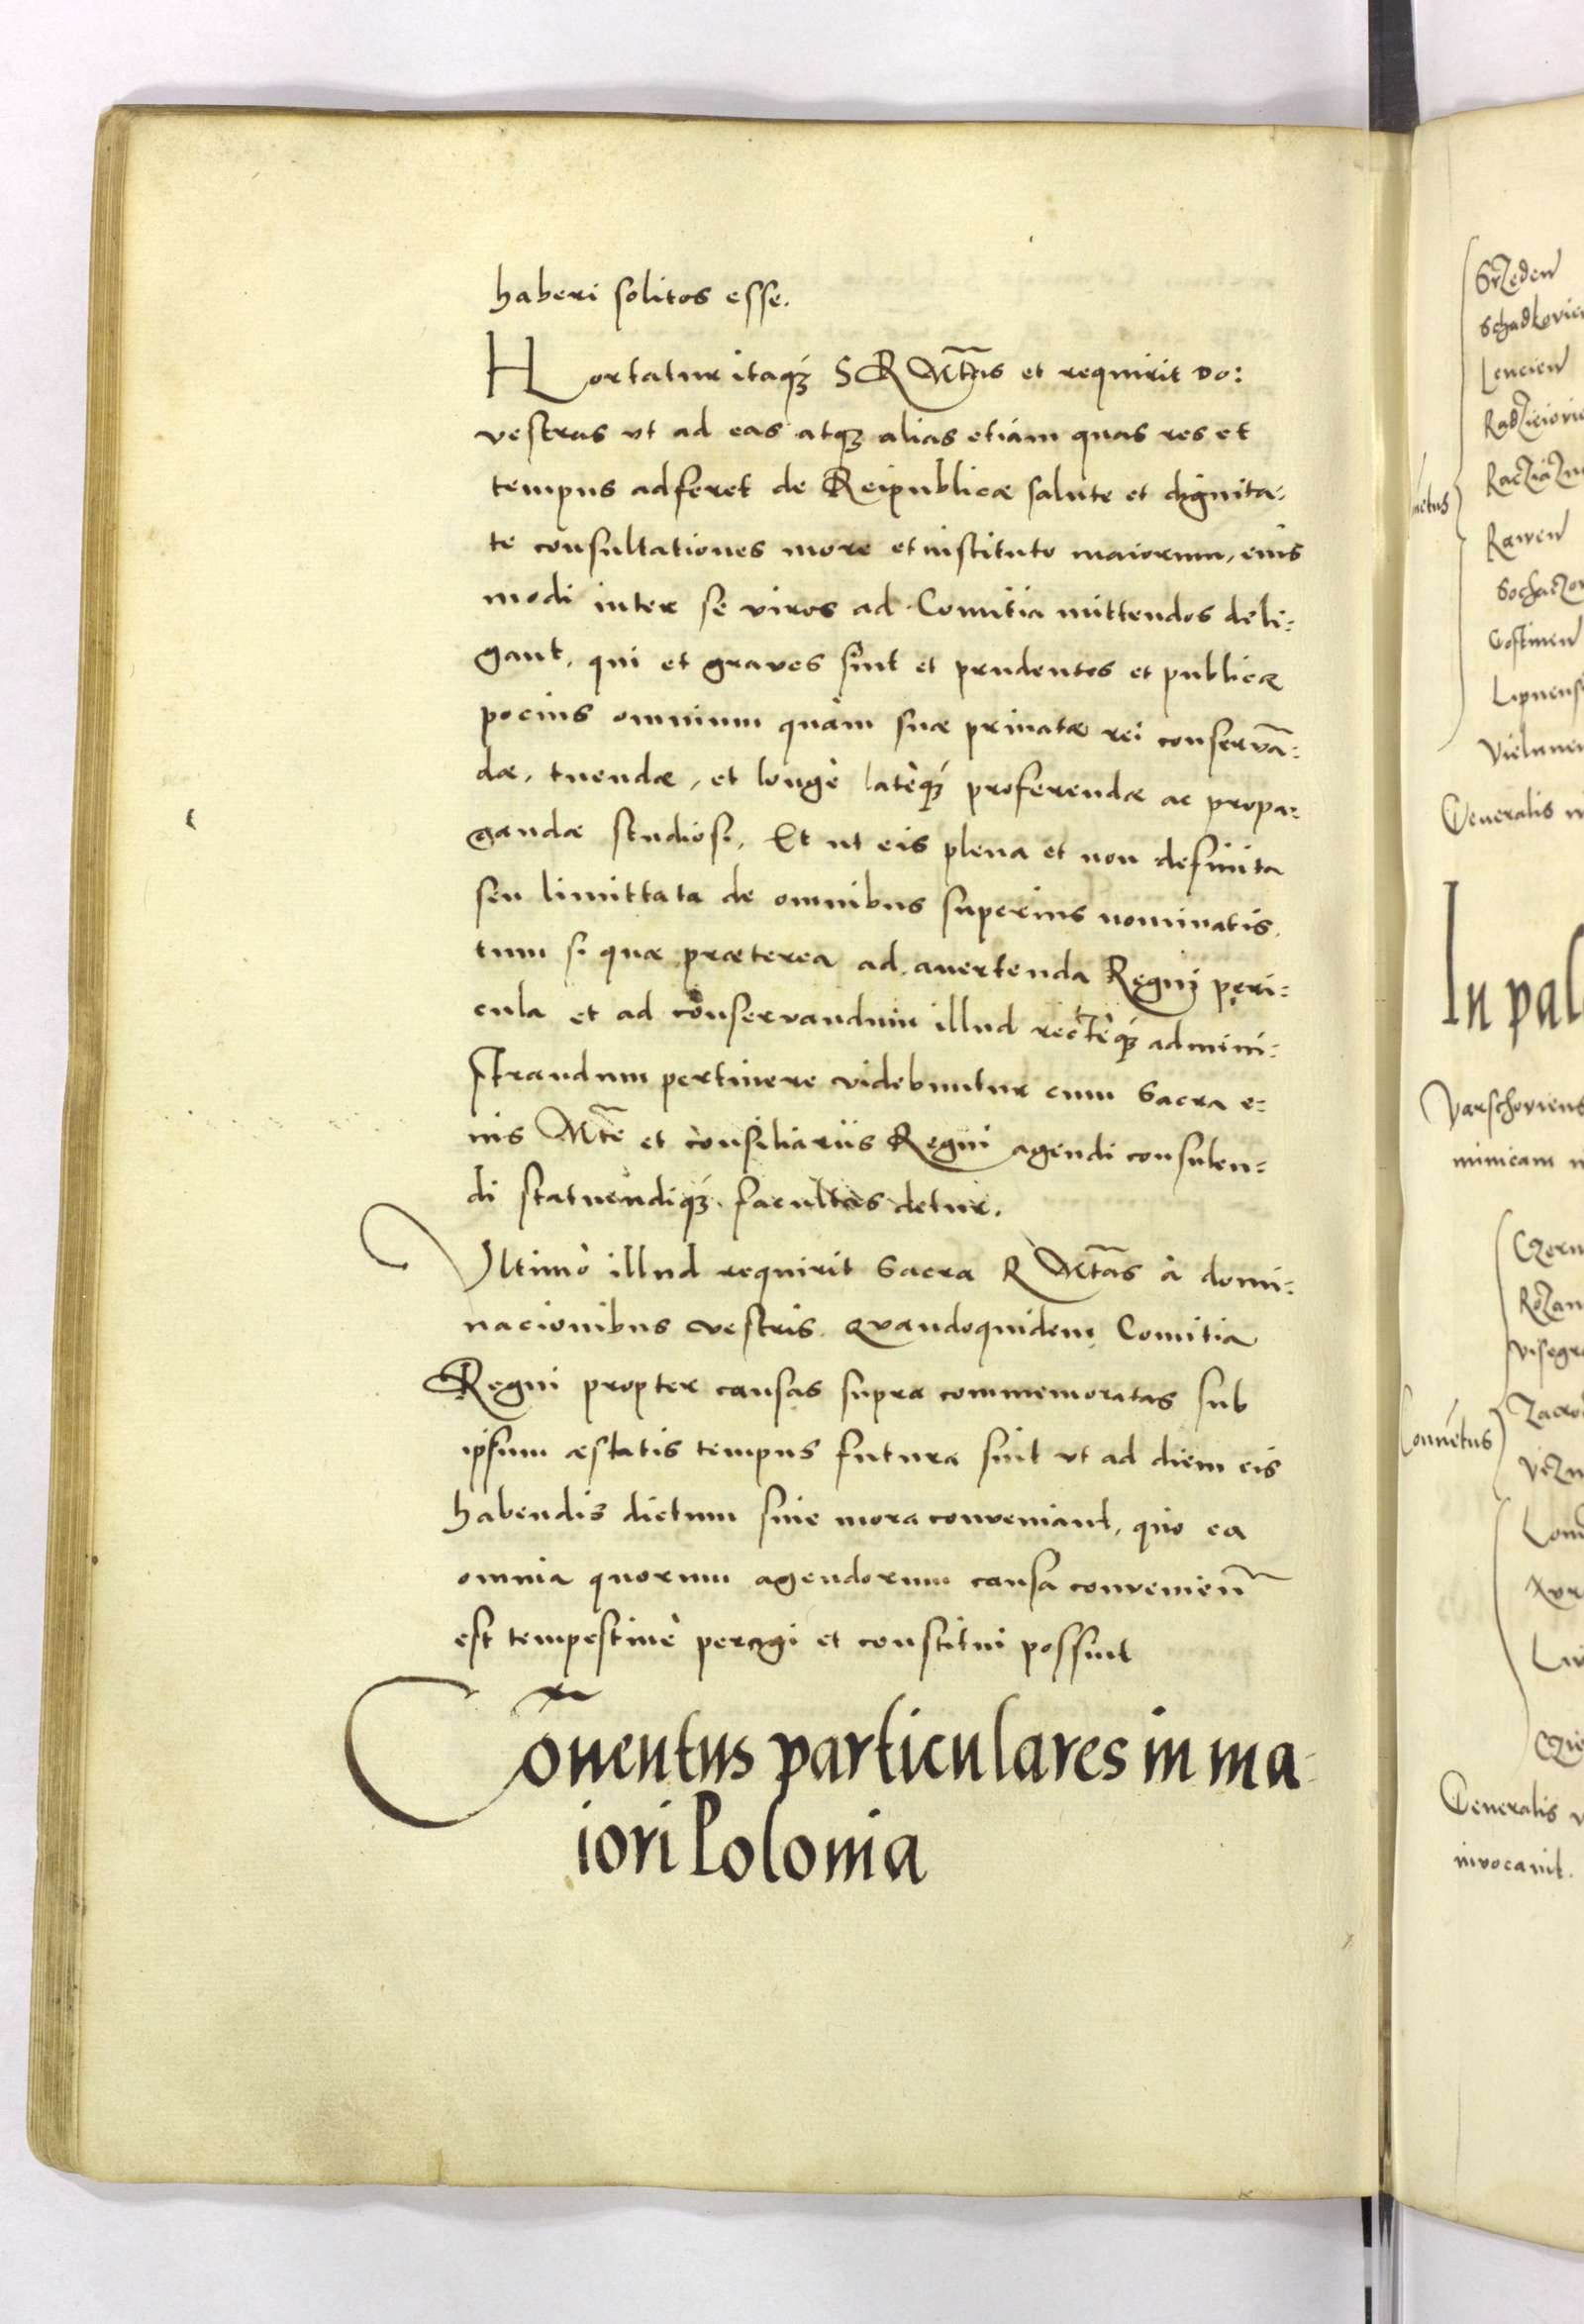 haberi solitos esse.
Hortatur itaqꝫ S R Mtas et requirit Do:
vestras ut ad eas atqꝫ alias etiam quas res et
tempus adferet de Reipublicæ salute et dignita-
te consultationes more et instituto maiorum, eius
modi inter se viros ad Comitia mittendos deli-
gant, qui et graves sint et prudentes et publicæ
pocius omnium quàm suæ privatæ rei conservā-
dæ, tuendæ, et longè latèqꝫ proferendæ ac propa-
gandæ studiosi, Et ut eis plena et non definita
seu limittata de omnibus superius nominatis,
tum si quæ præterea ad avertenda Regni peri-
cula et ad conservandum illud rectèqꝫ admini-
strandum pertinere videbuntur cum Sacra e-
ius Mte et consiliariis Regni agendi consulen-
di statuendiqꝫ facultas detur.
Ultimò illud requirit Sacra R Mtas à domi-
nacionibus vestris quandoquidem Comitia
Regni propter causas supra commemoratas sub
ipsum æstatis tempus futura sint ut ad diem eis
habendis dictum sine mora conveniant, quo ea
omnia quorum agendorum causa conveniend
est tempestivè peragi et constitui possint
Cōventus particulares in ma-
iori Polonia
Srzeden
Schadkovien
Lencicien
Radzieiovie
Racziązn
Rawen
Sochaczov
Gostinen
Lipnens
Vielunen
Generalis
In pal
Varschoviens
minicam
Czern
Rozan
Visegr
Zacro
Conventus
Vizn
Lom
Liv
Czie
Generalis
invocavit.